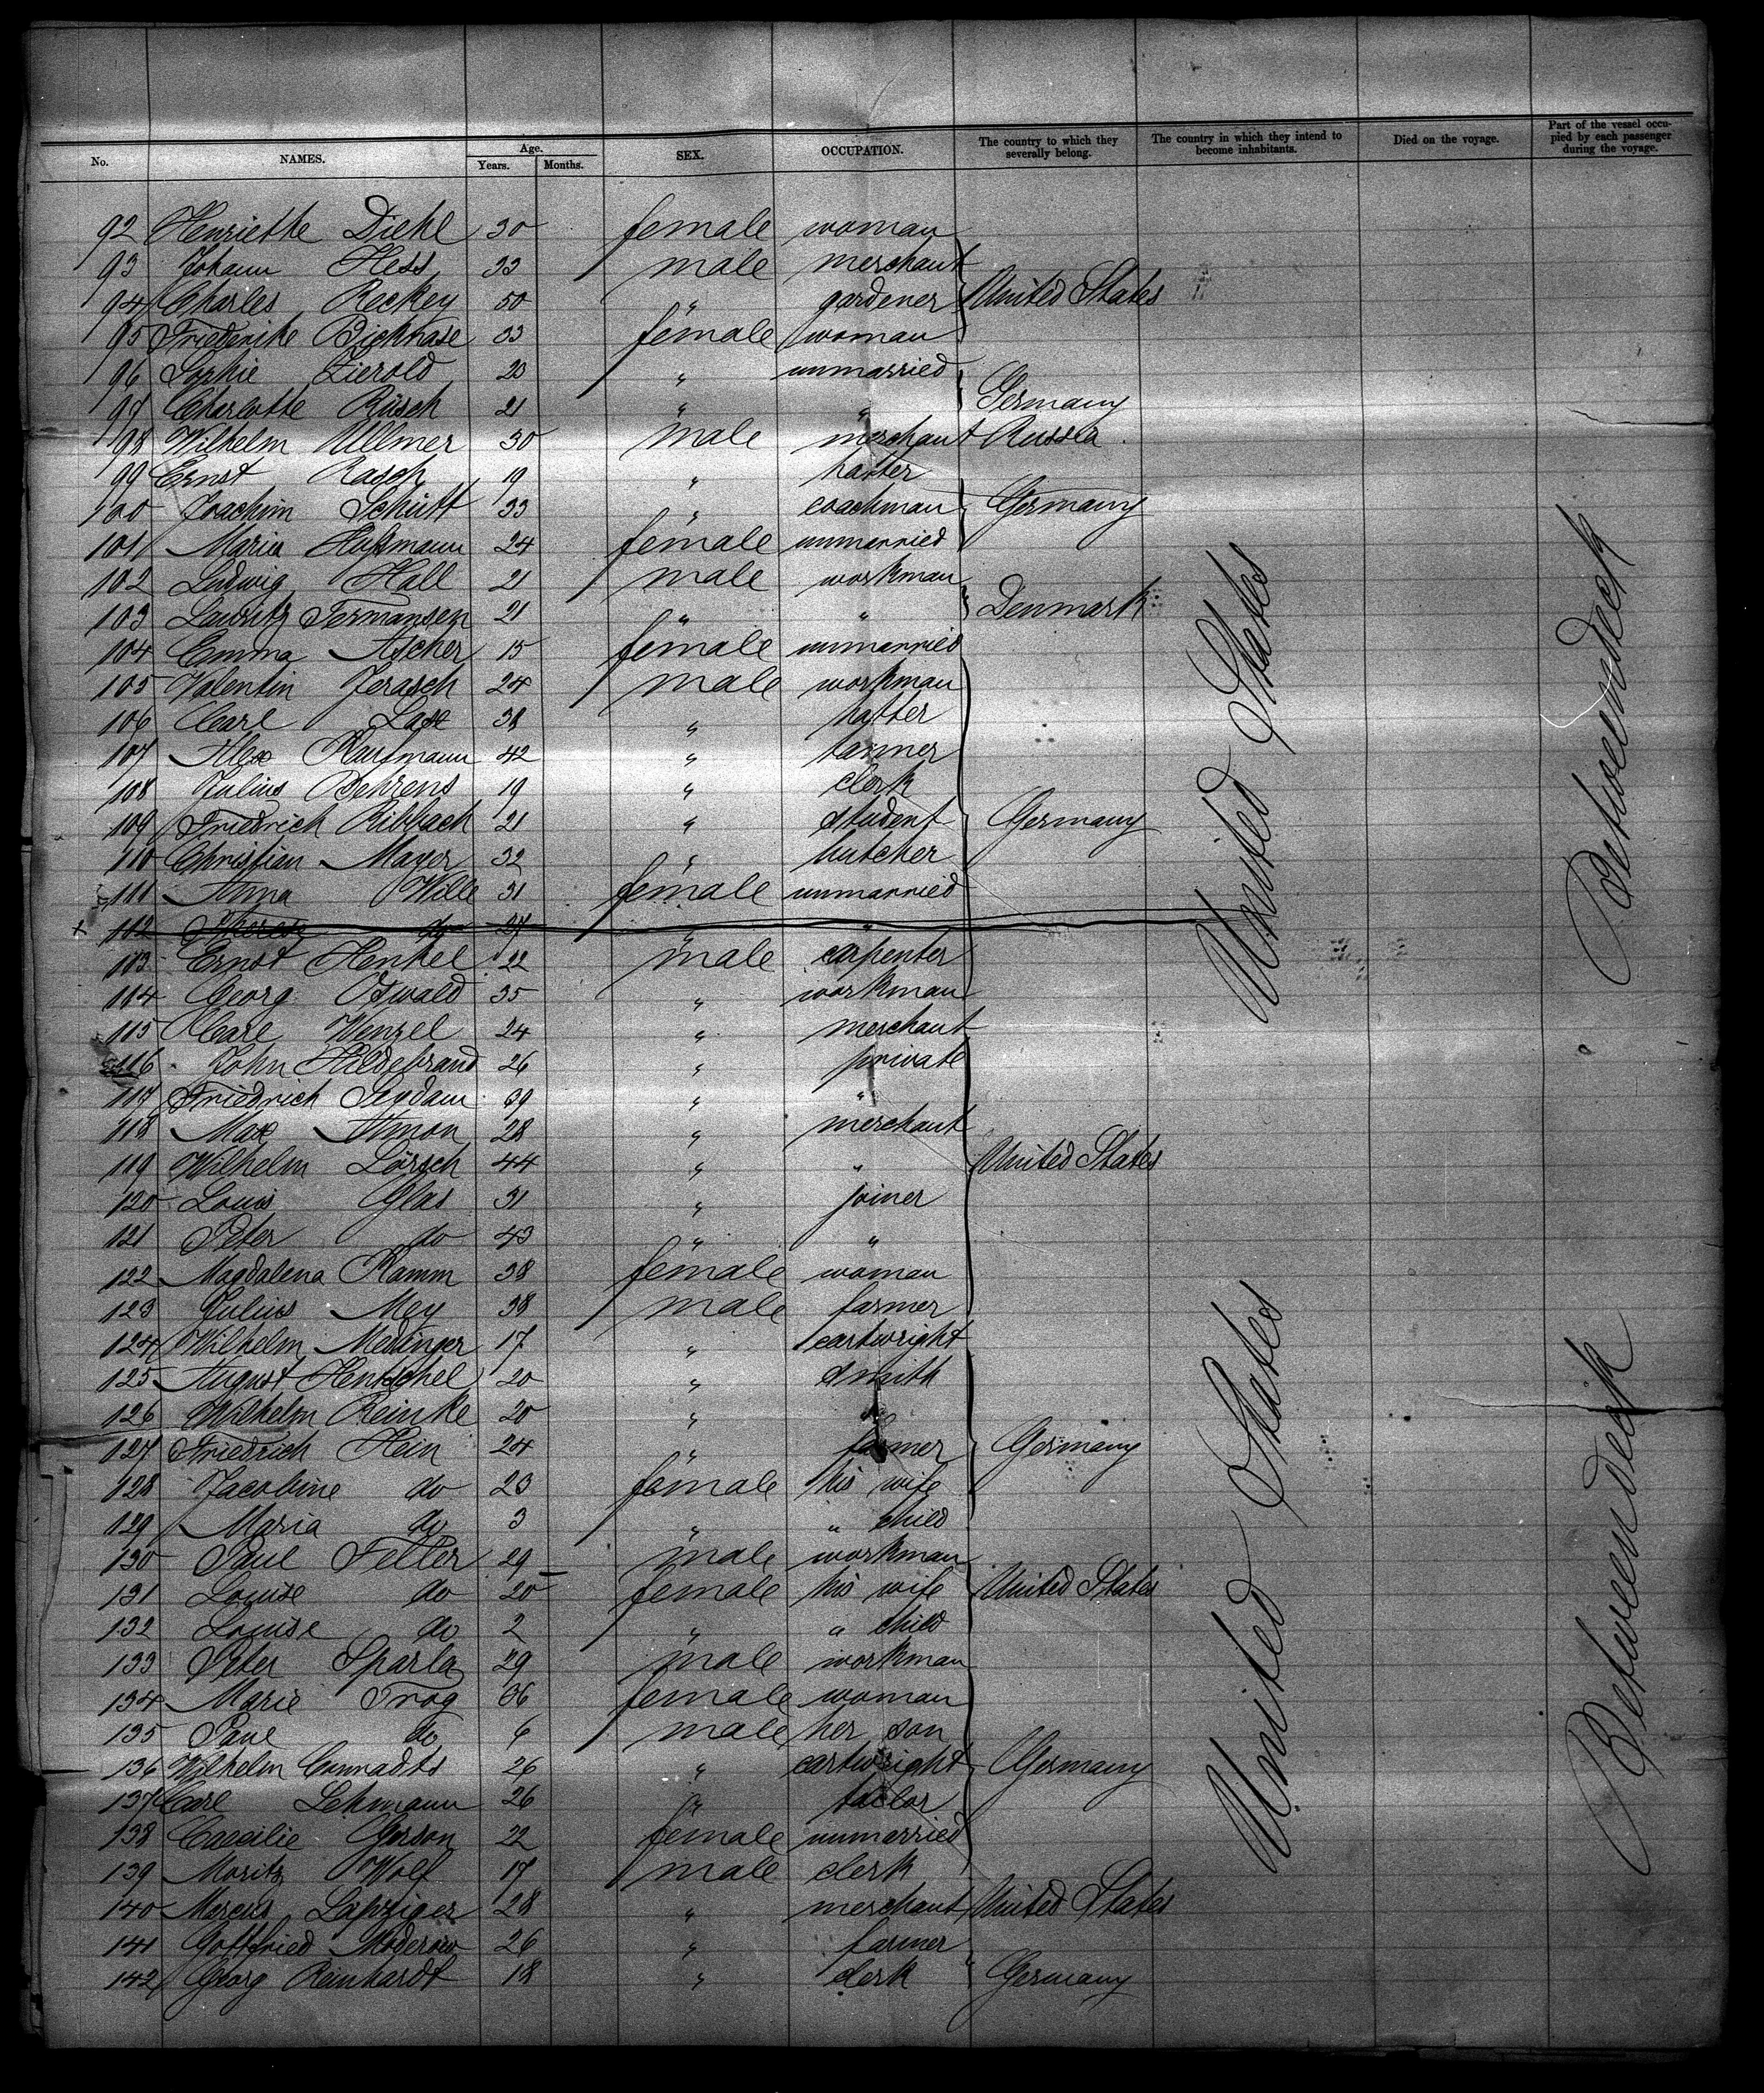 No. NAMES. Age. Years. Months. SEX. OCCUPATION. The country to which they severally belong. The country in which they intend to become inhabitants. Died on the voyage. Part of the vessel occupied by each passenger during the voyage.
92 Henriette Diehl 30 female woman
93 Johann Hess 33 male merchant
94 Charles Reckey 50 " gardener United States
95 Friederike Bickhase 33 female woman
96 Sophie Zierold 23 " unmarried
97 Charlotte Rüsch 21 " " Germany
98 Wilhelm Ullmer 30 male merchant Russia
99 Ernst Rasch 19 " hatter
100 Joachim Schütt 33 " coachman Germany
101 Maria Hoffmann 24 female unmarried
102 Ludwig Hall 21 male workman
103 Lauritz Termansen 21 " " Denmark
104 Emma Ascher 15 female unmarried
105 Valentin Jerasch 24 male workman
106 Carl 38 " hatter
107 Alex Kaufmann 42 " farmer
108 Julius Behrens 19 " clerk
109 Friedrich Ribbach 21 " student Germany
110 Christian Mayer 32 " butcher
111 Anna Wille 31 female unmarried
112 Therese do 27 " "
113 Ernst Henkel 22 male carpenter
114 Georg Oswald 35 " workman
115 Carl Wenzel 24 " merchant
116 John Hildebrand 26 " private
117 Friedrich Seydam 39 " "
118 Max Simon 28 " merchant
119 Wilhelm Lörsch 44 " " United States
120 Louis Glas 31 " joiner
121 Peter do 43 " "
122 Magdalena Kamm 38 female woman
123 Julius Mey 38 male farmer
124 Wilhelm Medinger 17 " cartwright
125 August Hentschel 20 " smith
126 Wilhelm Reinke 20 " "
127 Friedrich Hein 24 " farmer Germany
128 Jacobine do 23 female his wife
129 Maria do 3 " " child
130 Paul Feller 29 male workman
131 Louise do 20 female his wife United States
132 Louise do 2 " " child
133 Peter Sparla 29 male workman
134 Marie Trog 36 female woman
135 Paul do 6 male her son
136 Wilhelm 26 " cartwright Germany
137 Carl Lehmann 26 " tailor
138 Caecilie Gerson 22 female unmarried
139 Moritz Wolf 17 male clerk
140 Marcus Lapziger 28 " merchant United States
141 Gottfried Moderow 26 " farmer
142 Georg Reinhardt 18 " clerk Germany
United States
United States
Betweendeck
Betweendeck